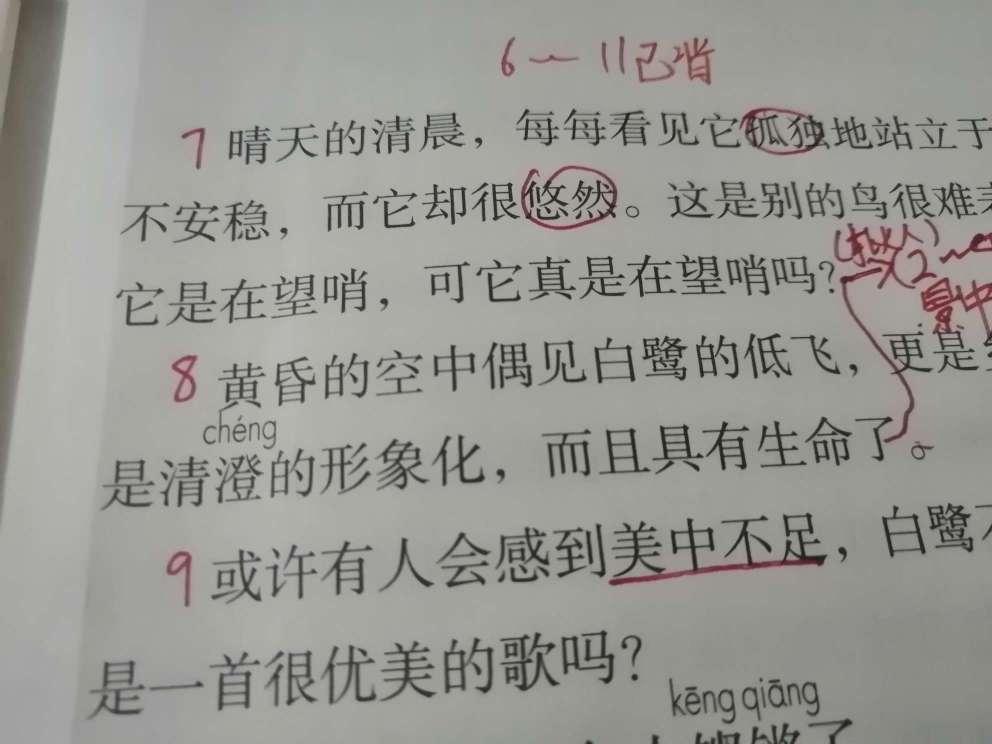 6～11已背
7 晴天的清晨，每每看见它孤独地站立于
不安稳，而它却很悠然。这是别的鸟很难
它是在望哨，可它真是在望哨吗？
8 黄昏的空中偶见白鹭的低飞，更是
chéng
是清澄的形象化，而且具有生命了。
9 或许有人会感到美中不足，白鹭不
是一首很优美的歌吗？
kēng qiāng